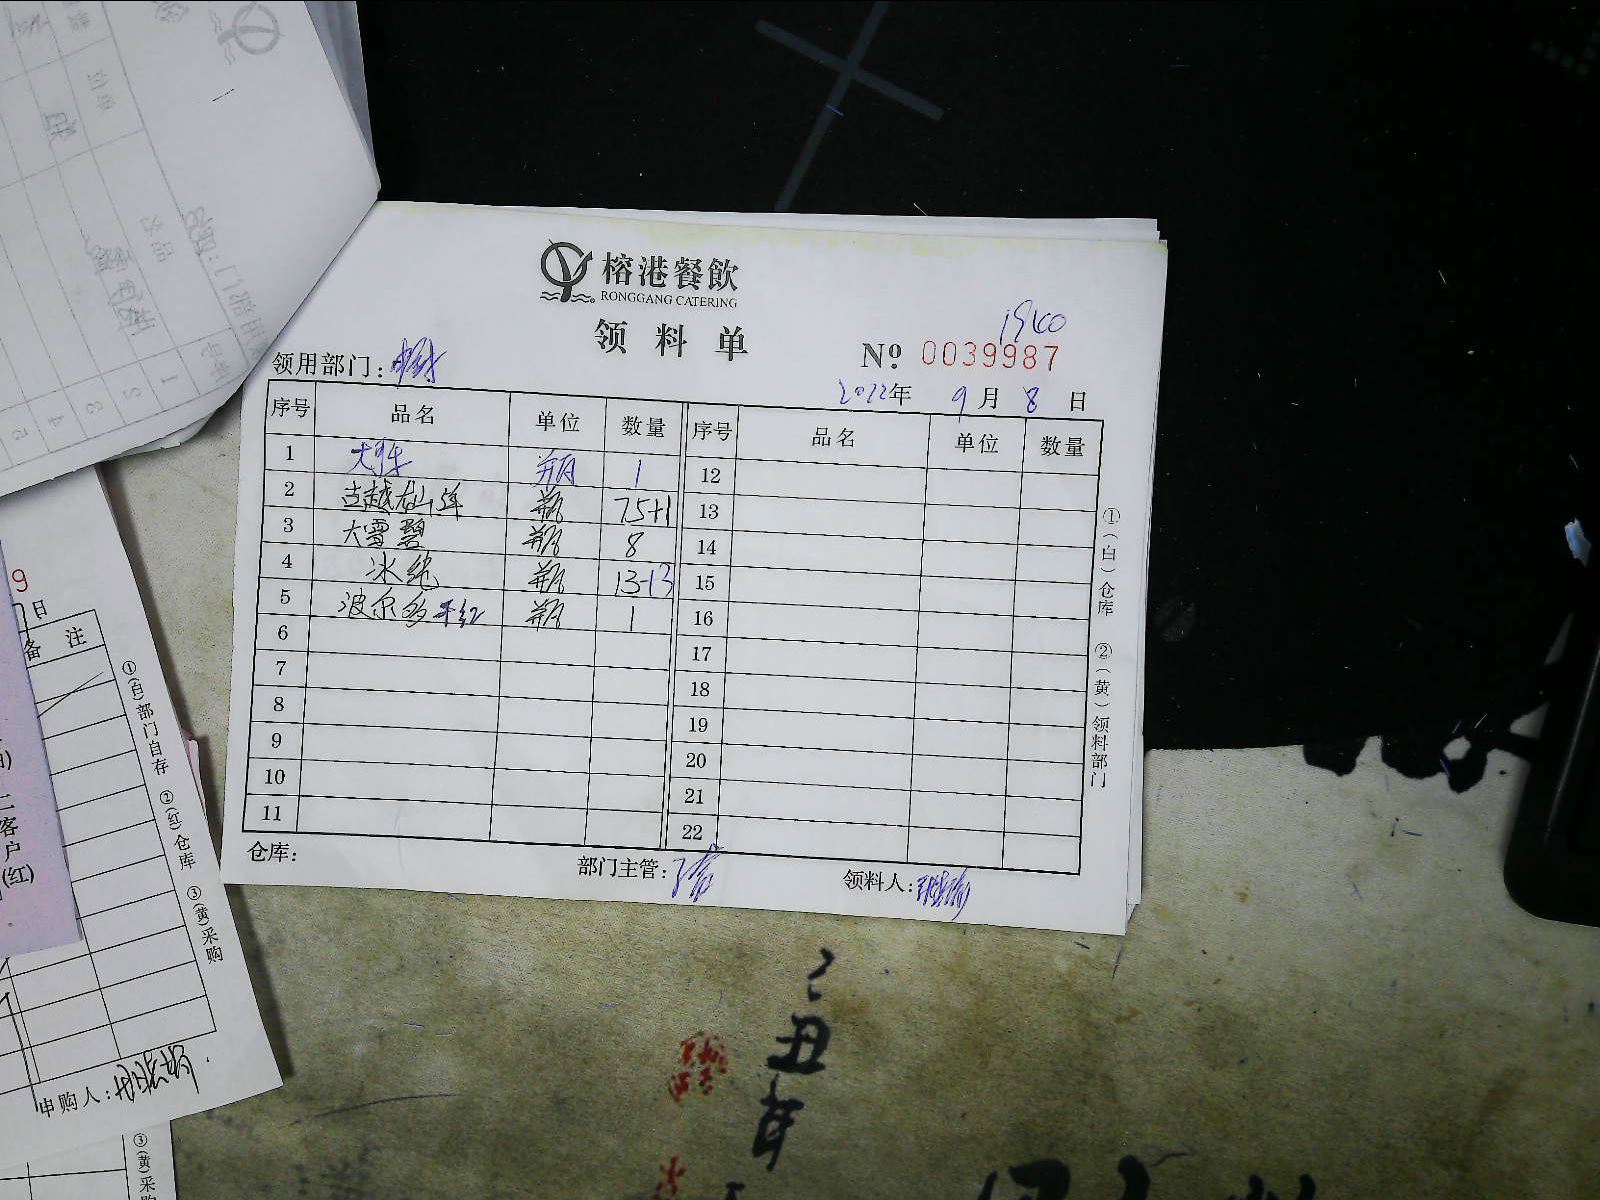 榕港餐飲
RONGGANG CATERING
领料单
1940
领用部门:
№ 0039987
2022年 9月 8日
序号 品名 单位 数量 序号 品名 单位 数量
1 瓶 1 12
2 古越龙山 瓶 75+1 13
3 大雪碧 瓶 8 14
4 冰纯 瓶 13-13 15
5 波尔多干红 瓶 1 16
6 17
7 18
8 19
9 20
10 21
11 22
仓库: 部门主管: 领料人:
①(白)仓库 ②(黄)领料部门
9
日
备注
①(白)部门自存 ②(红)仓库 ③(黄)采购
二
客
户
(红)
申购人:
③(黄)采
丑
年